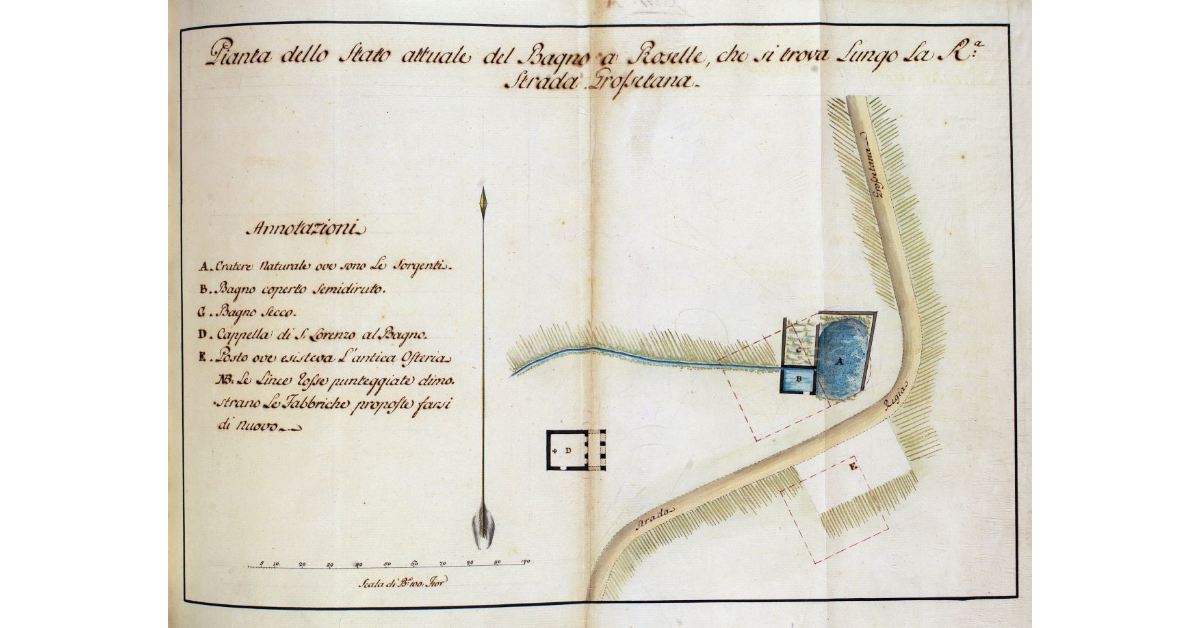 Pianta dello Stato attuale del Bagno a Roselle, che si trova Lungo La R.a
Strada Grossetana.
Annotazioni
A. Cratere Naturale ove sono Le Sorgenti.
B. Bagno coperto Semidiruto.
C. Bagno Secco.
D. Cappella di S. Lorenzo al Bagno.
E. Posto ove esisteva L'antica Osteria
NB. Le Linee rosse punteggiate dimo-
strano Le Fabbriche proposte farsi
di nuovo
Grossetana
C
A
B
Regia
D
E
Strada
5 10 20 30 40 50 60 70 80 90 100
Scala di B.a 100. Fior